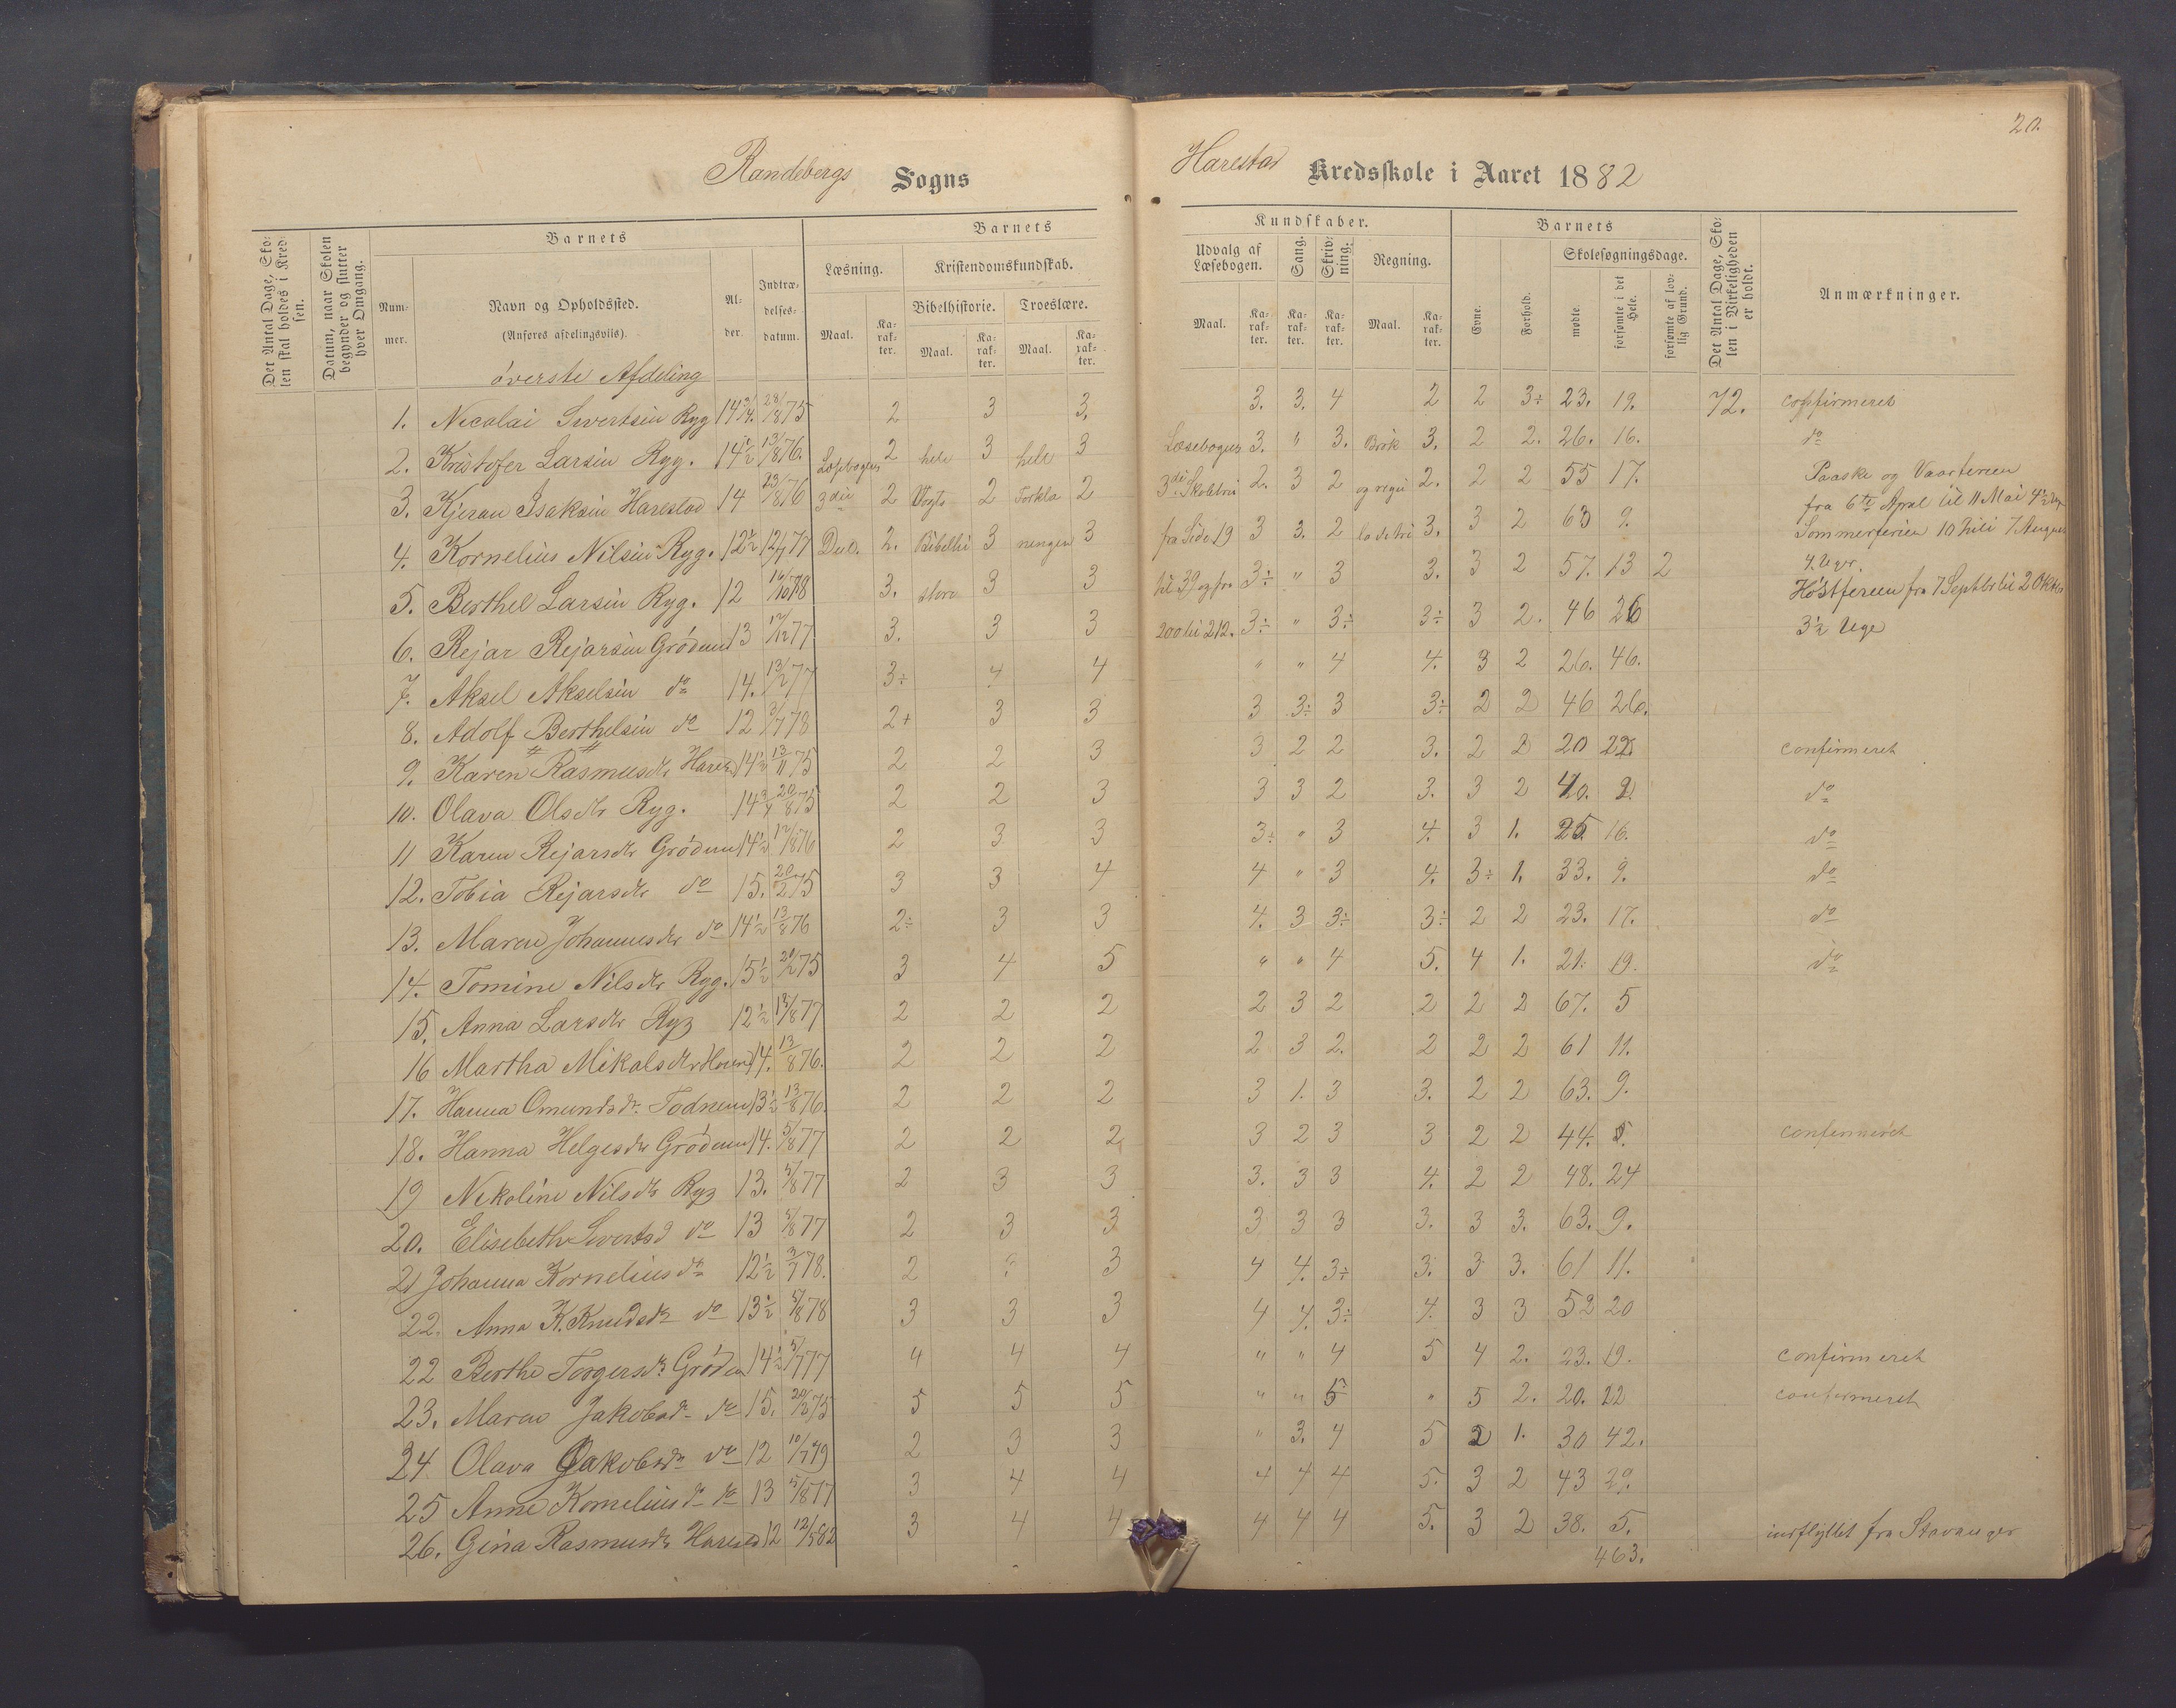 20.
Randebergs Sogns
Harestad Kredsskole i Aaret 1882
Det Antal Dage, Skolen skal holdes i Kredsen.
Datum, naar Skolen begynder og slutter hver Omgang.
Barnets
Nummer.
Navn og Opholdssted.
(Anføres afdelingsvis).
Alder.
Indtrædelses-datum.
Barnets
Læsning.
Kristendomskundskab.
Bibelhistorie.
Troeslære.
Maal. Karakter. Maal. Karakter. Maal. Karakter.
Kundskaber.
Udvalg af Læsebogen.
Sang.
Skrivning.
Regning.
Maal. Karakter. Karakter. Karakter. Maal. Karakter.
Barnets
Evne.
Forhold.
Skolesøgningsdage.
mødte
forsømte i det Hele.
forsømte af lovlig Grund.
Det Antal Dage, Skolen i Virkeligheden er holdt.
Anmærkninger.
øverste Afdeling
1. Nicolai Sivertsen Ryg 14 3/4. 28/8 75 2 3 3. 3. 3. 4 2 2 3÷ 23. 19. 72. confirmeret
2. Kristofer Larsen Ryg. 14 1/2 13/8 76. Læsebogens 2 hele 3 hele 3 Læsebogens 3. " 3. Brøk 3. 2 2. 26. 16. do
3. Kjeran Isaksen Harestad 14 23/8 76 3die 2 Vogts 2 Forkla 2 3die Skoletrin 2. 3 2 og regu 2. 2 2 55 17. Paaske og Vaarferien
fra 6te April til 11 Mai 4 1/2 Uge
4. Kornelius Nilsen Ryg. 12 1/2 12/7 77 Del. 2. Bibelhi 3 ringen 3 fra Side 19 3 3. 2 la de tri 3. 3 2 63 9. Sommerferien 10 Juli 7 August
4 Uger.
5. Berthel Larsen Ryg. 12 16/10 78 3. storie 3 3 til 39 og fra 3÷ " 3 3. 3 2 57. 13 2 Høstferien fra 7 Septbr til 2 Oktbr
6. Rejar Rejarsen Grødem 13 12/12 77 3. 3 3 200 til 212. 3÷ " 3÷ 3÷ 3 2. 46 26 3 1/2 Uge
7. Aksel Akselsen do 14. 13/2 77 3÷ 4 4 " " 4 4. 3 2 26. 46.
8. Adolf Berthelsen do 12 3/7 78 2+ 3 3 3 3÷ 3 3÷ 2 2 46 26.
9. Karen Rasmusdtr Harest 14 1/2 13/11 75 2 2 3 3 2 2 3. 2 2 20 22. confirmeret
10. Olava Olsdtr Ryg. 14 3/4 20/8 75 2 2 3 3 3 2 3. 3 2 40. 2. do
11 Karen Rejarsdtr Grødem 14 1/2 12/8 76 2 3 3 3÷ " 3 4. 3 1. 25 16. do
12. Tobia Rejarsdtr do 15. 20/2 75 3 3 4 4 " 3 4. 3÷ 1. 33. 9. do
13. Maren Johannesdtr do 14 1/2 13/8 76 2÷ 3 3 4. 3 3÷ 3÷ 2 2 23. 17. do
14. Tomine Nilsdtr Ryg. 15 1/2 20/2 75 3 4 5 " " 4 5. 4 1. 21. 19. do
15. Anna Larsdtr Ryg 12 1/2 13/8 77 2 2 2 2 3 2 2 2 2 67. 5
16 Martha Mikalsdtr Harest 14. 13/8 76. 2 2 2 2 3 2. 2 2 2 61 11.
17. Hanna Omundsdtr. Todnem 13 1/2 13/8 76. 2 2 2 3 1. 3 3. 2 2 63. 9.
18. Hanna Helgesdtr Grødem 14. 5/8 77 2 2 2 3 2 3 3 2 2 44. 5. confirmeret
19 Nikoline Nilsdtr Ryg 13. 5/8 77 2 3 3 3. 3 3 4. 2 2 48. 24
20. Elisebeth Sivertsd do 13 5/8 77 2 3 3 3 3 3 3. 3 3. 63. 9.
21 Johanna Kornelius do 12 1/2 3/7 78. 2 3 4 4. 3÷ 3. 3 3. 61 11.
22. Anna K. Knudsdtr do 13 1/2 5/8 78 3 3 3 4 4. 3÷ 4. 3 3 52 20
22 Berthe Torgersdtr Grødem 14 1/2 5/7 77 4 4 4 " " 4 5 4 2. 23. 19. confirmeret
23. Maren Jakobsd do 15. 20/2 75 5 5 5 " " 5 " 5 2. 20. 22 confirmeret
24 Olava Jakobsdtr do 12 10/7 79 2 3 3 " 3. 4 5 2 1. 30 42.
25 Anne Kornelius dtr do 13 5/8 77 3 4 4 4 4 4 5. 3 2 43 29.
26. Gina Rasmusdtr Harest 12 12/5 82 3 4 4 4 4 4 5. 3 2 38. 5. indflyttet fra Stavanger
463.